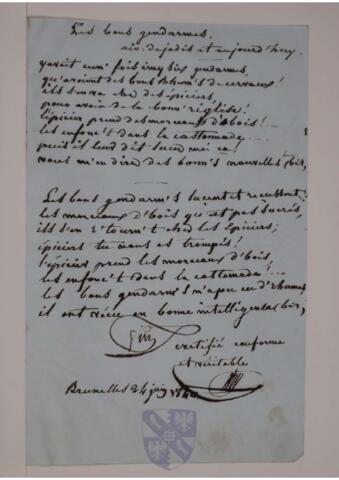 Les bons gendarmes.
air de jadis et aujourd'huy
y avait eun' fois cinq six gendarmes,
qu'avaient des bons Rhum's de cerveaux!
ils s'en va chez des épiciers,
pour avoir de la bonn' réglise!
l'épicier prend des morceaux d'bois!..
les enfonc't dans la cassonnade...
puis il leur dit sucez moi ça!
vous m'en direz des bonn's nouvelles (bis,
Les bons gendarm's sucent et resucent
les morceaux d'bois qu'est pas sucrés,
ils s'en r'tourn't chez les Epiciers,
épiciers tu nous as trompés!
l'épicier prend les morceaux d'bois,
les enfonc't dans la cassonade!...
les bons gendarm's n'a pu eu d'rhumes
il ont vécu en bonne intelligence (bis,
fin
certifié conforme
et véritable
Bruxelles 24 juin